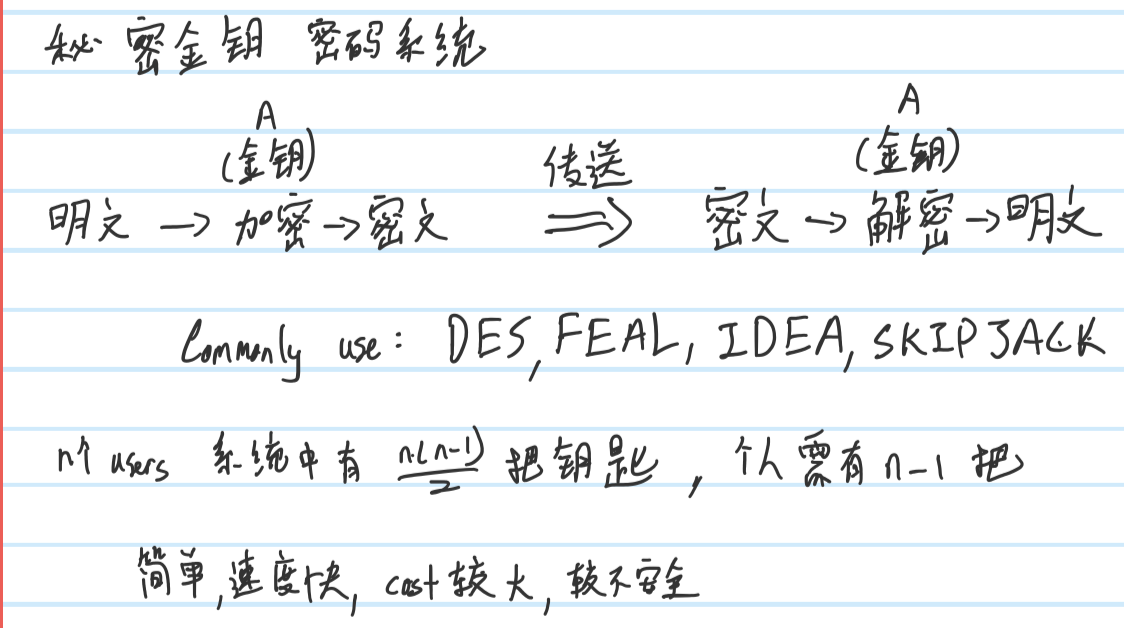 秘密金钥 密码系统
A A
(金钥) 传送 (金钥)
明文 → 加密 → 密文 ⇒ 密文 → 解密 → 明文
Commonly use: DES, FEAL, IDEA, SKIPJACK
n个 users 系统中有 n(n-1)/2 把钥匙, 个人需有 n-1 把
简单, 速度快, cost较大, 较不安全